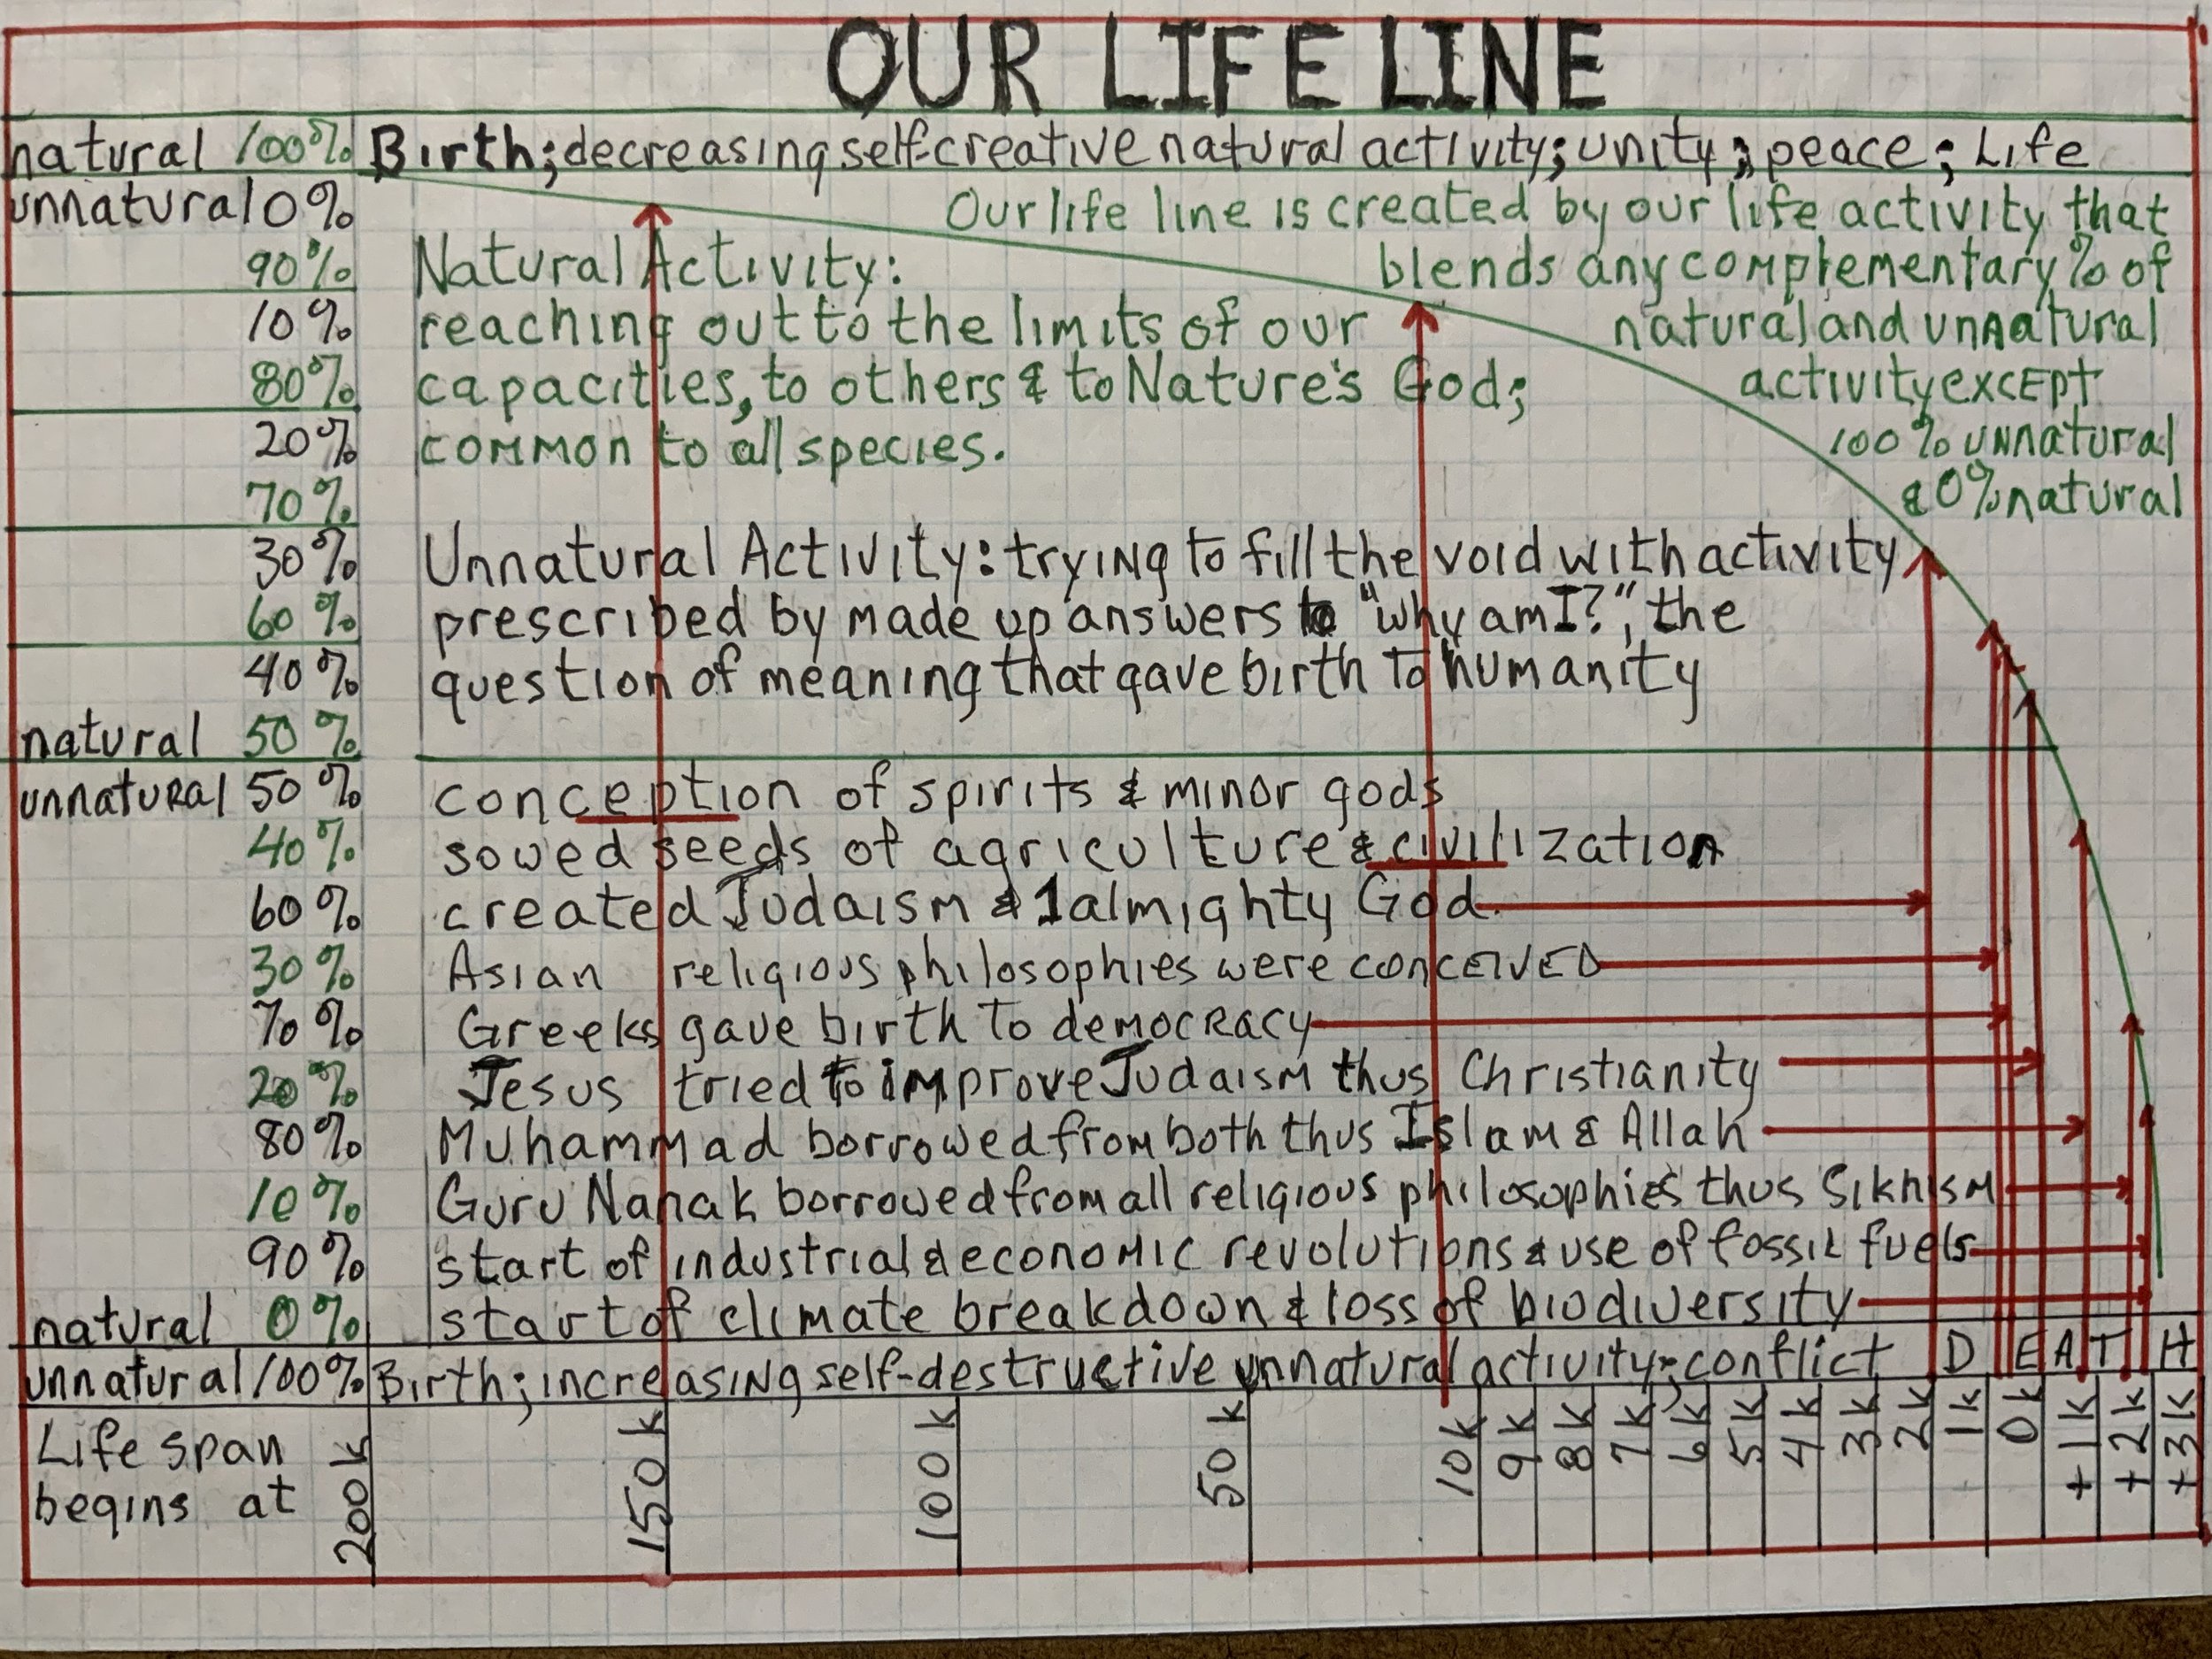 OUR LIFE LINE
natural 100% Birth; decreasing self-creative natural activity; unity; peace; Life
unnatural 0%
Our life line is created by our life activity that
90% Natural Activity:
blends any complementary % of
10% reaching out to the limits of our
natural and unnatural
80% capacities, to others & to Nature's God;
activity EXCEPT
20% common to all species.
100% unnatural
70%
& 0% natural
30% Unnatural Activity: trying to fill the void with activity
60% prescribed by made up answers to "why am I?", the
40% question of meaning that gave birth to humanity
natural 50%
unnatural 50% conception of spirits & minor gods
40% sowed seeds of agriculture & civilization
60% created Judaism & 1 almighty God
30% Asian religious philosophies were conceived
70% Greeks gave birth to democracy
20% Jesus tried to improve Judaism thus Christianity
80% Muhammad borrowed from both thus Islam & Allah
10% Guru Nanak borrowed from all religious philosophies thus Sikhism
90% start of industrial & economic revolutions & use of fossil fuels
natural 0% start of climate breakdown & loss of biodiversity
unnatural 100% Birth; increasing self-destructive unnatural activity; conflict DEATH
Life span
begins at
200k 150k 100k 50k 10k 9k 8k 7k 6k 5k 4k 3k 2k 1k 0k +1k +2k +3k